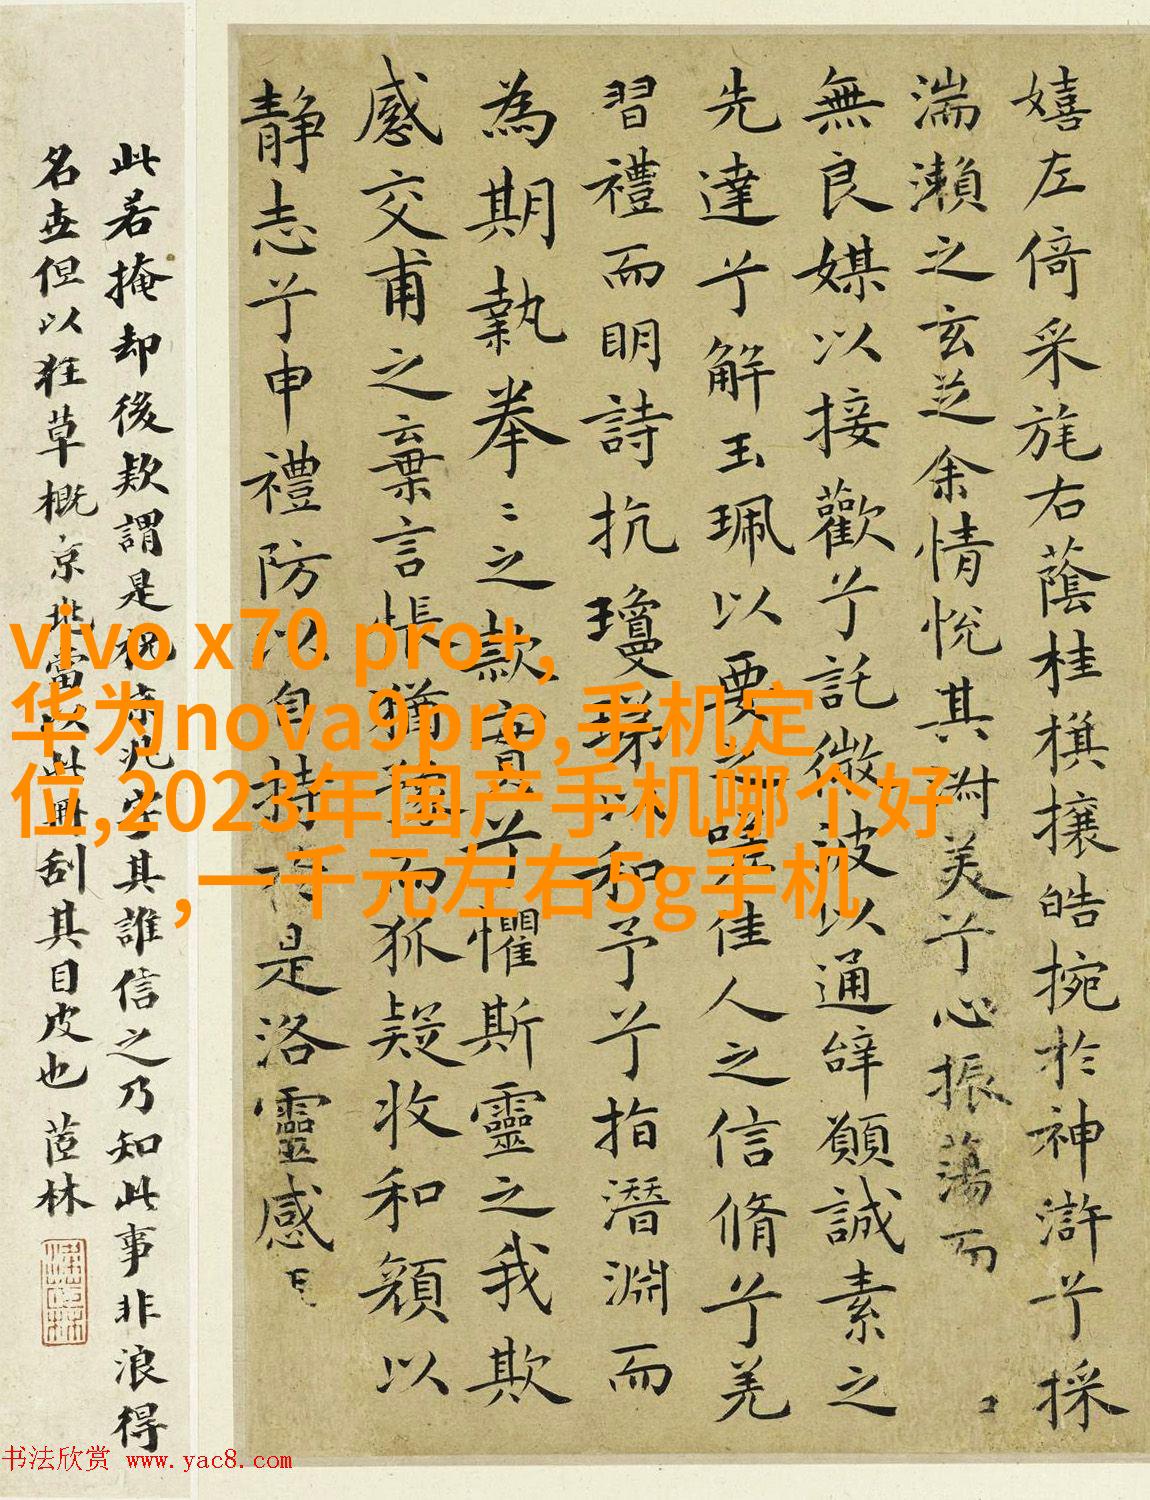 嬉左倚采旄右蔭桂旗攘皓捥於神滸兮採
湍瀨之玄芝余情悅其淑美兮心振蕩而
無良媒以接歡兮託微波以通辝願誠素之
先達兮解玉珮以要之嗟佳人之信脩兮羌
習禮而明詩抗瓊珶以和予兮指潛淵而
為期執拳〻之款實兮懼斯靈之我欺
感交甫之棄言悵猶豫而狐疑收和顏以
靜志兮申禮防以自持於是洛靈感
此若掩却後款謂是祝京兆字其誰信之乃知此事非浪得
名世但以狂草概京兆當以此冊刮其目皮也 茝林
vivo x70 pro+,
华为nova9pro,手机定
位,2023年国产手机哪个好
，一千元左右5g手机
书法欣赏 www.yac8.com